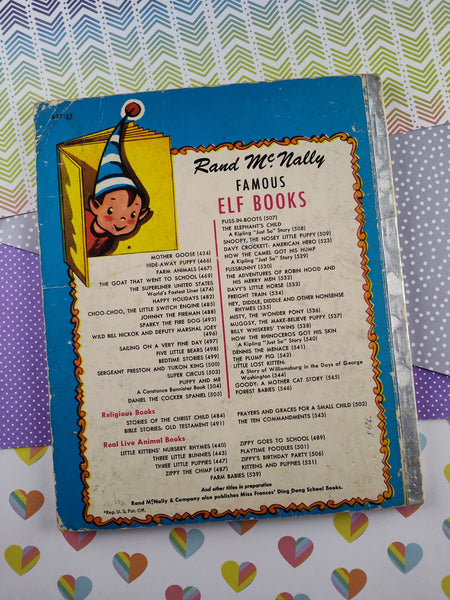 Rand McNally
FAMOUS
ELF BOOKS
MOTHER GOOSE (424)
HIDE-AWAY PUPPY (466)
FARM ANIMALS (467)
THE GOAT THAT WENT TO SCHOOL (469)
THE SUPERLINER UNITED STATES
World's Fastest Liner (474)
HAPPY HOLIDAYS (482)
CHOO-CHOO, THE LITTLE SWITCH ENGINE (485)
JOHNNY THE FIREMAN (488)
SPARKY THE FIRE DOG (495)
WILD BILL HICKOK AND DEPUTY MARSHAL JOEY
(496)
SAILING ON A VERY FINE DAY (497)
FIVE LITTLE BEARS (498)
BEDTIME STORIES (499)
SERGEANT PRESTON AND YUKON KING (500)
SUPER CIRCUS (503)
PUPPY AND ME
A Constance Bannister Book (504)
DANIEL THE COCKER SPANIEL (505)
PUSS-IN-BOOTS (507)
THE ELEPHANT'S CHILD
A Kipling "Just So" Story (508)
SNOOPY, THE NOSEY LITTLE PUPPY (509)
DAVY CROCKETT: AMERICAN HERO (523)
HOW THE CAMEL GOT HIS HUMP
A Kipling "Just So" Story (529)
PUSSBUNNY (530)
THE ADVENTURES OF ROBIN HOOD AND
HIS MERRY MEN (532)
DAVY'S LITTLE HORSE (533)
FREIGHT TRAIN (534)
HEY, DIDDLE, DIDDLE AND OTHER NONSENSE
RHYMES (535)
MISTY, THE WONDER PONY (536)
MUGGSY, THE MAKE-BELIEVE PUPPY (537)
BILLY WHISKERS' TWINS (538)
HOW THE RHINOCEROS GOT HIS SKIN
A Kipling "Just So" Story (540)
DENNIS THE MENACE (541)
THE PLUMP PIG (542)
LITTLE LOST KITTEN:
A Story of Williamsburg in the Days of George
Washington (544)
GOODY: A MOTHER CAT STORY (545)
FOREST BABIES (546)
Religious Books
STORIES OF THE CHRIST CHILD (484)
BIBLE STORIES: OLD TESTAMENT (491)
PRAYERS AND GRACES FOR A SMALL CHILD (502)
THE TEN COMMANDMENTS (543)
Real Live Animal Books
LITTLE KITTENS' NURSERY RHYMES (440)
THREE LITTLE BUNNIES (443)
THREE LITTLE PUPPIES (447)
ZIPPY THE CHIMP (487)
ZIPPY GOES TO SCHOOL (489)
PLAYTIME POODLES (501)
ZIPPY'S BIRTHDAY PARTY (506)
KITTENS AND PUPPIES (531)
FARM BABIES (539)
And other titles in preparation
Rand McNally & Company also publishes Miss Frances' Ding Dong School Books.
*Reg. U. S. Pat. Off.